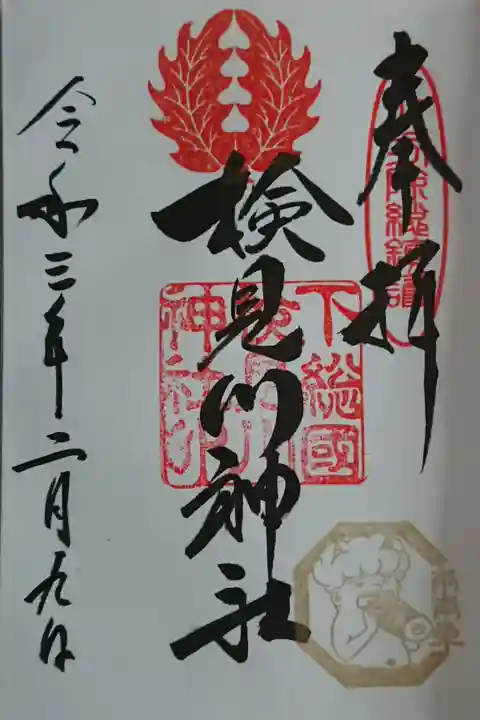 奉拝
検見川神社
下総國
検見川
神社印
令和三年二月九日